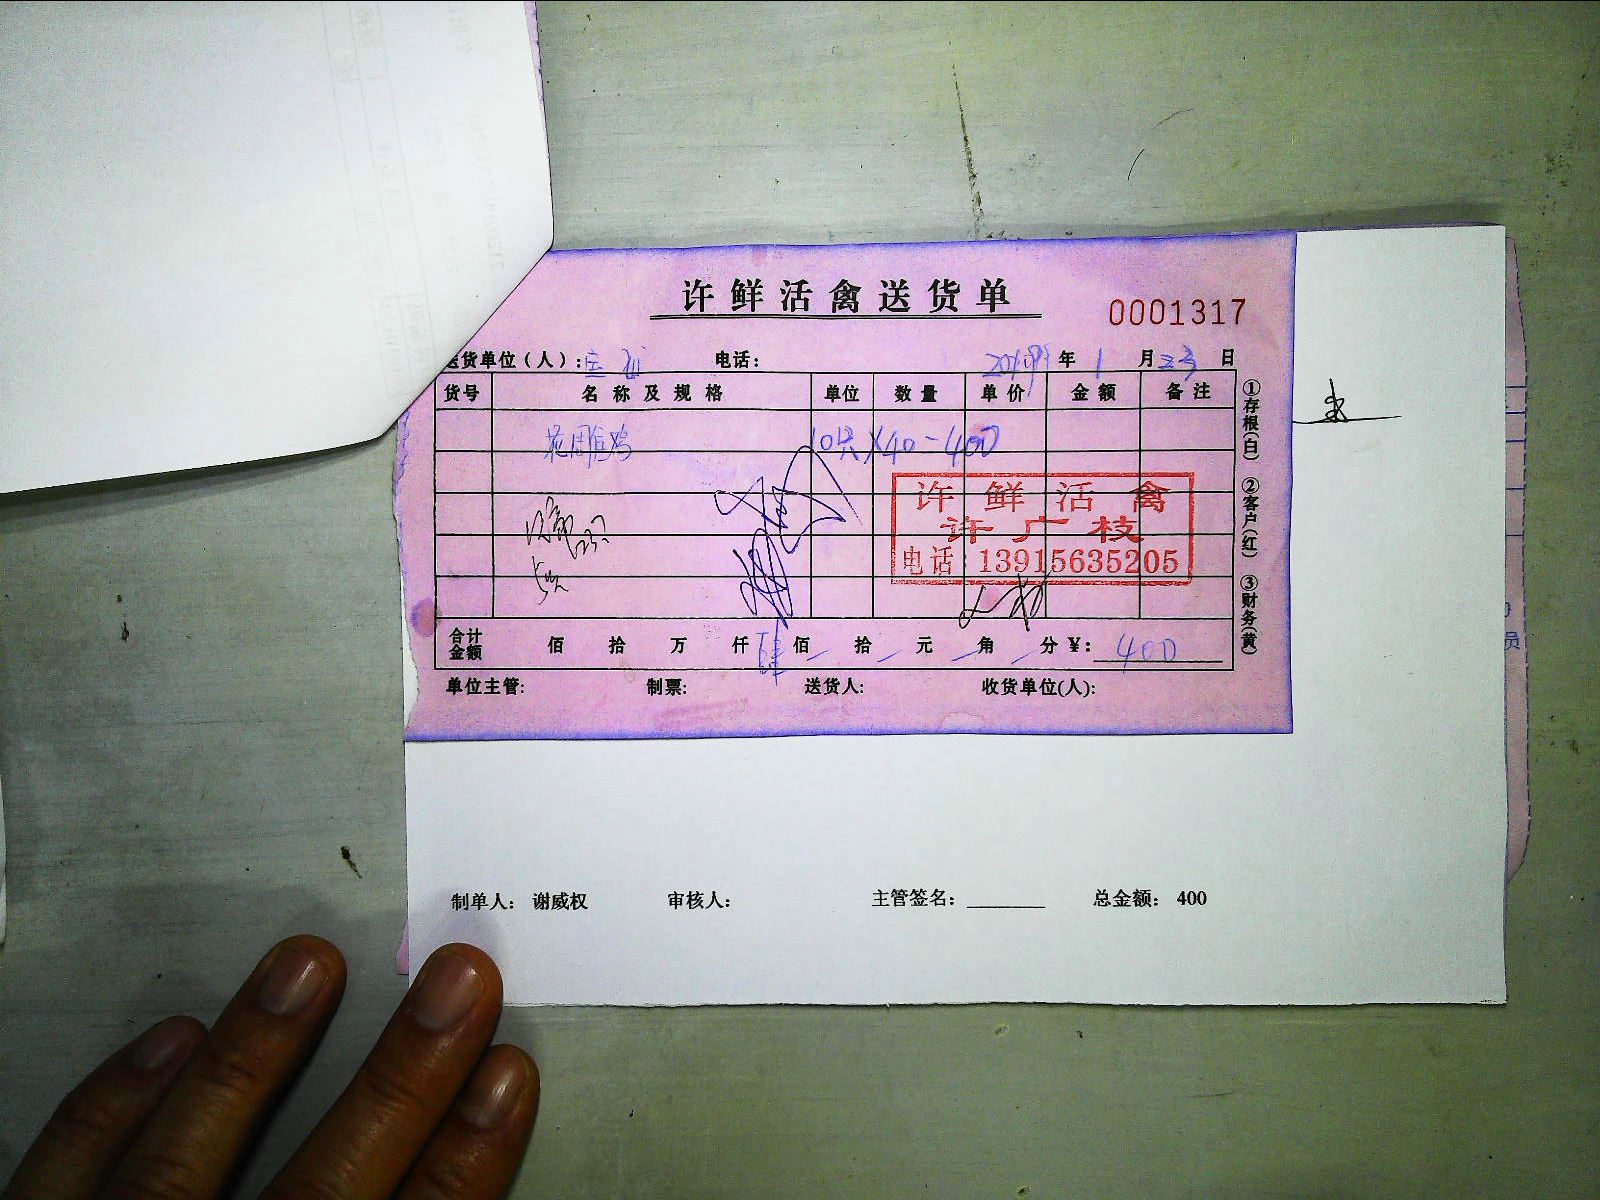 许鲜活禽送货单
0001317
送货单位（人）： 电话： 年 1 月 日
货号 名称及规格 单位 数量 单价 金额 备注
花雕鸡 10只×40-400
许鲜活禽
许广枝
电话：13915635205
合计金额 佰 拾 万 仟 肆 佰 拾 元 角 分 ¥： 400
单位主管： 制票： 送货人： 收货单位(人)：
①存根(白) ②客户(红) ③财务(黄)
员
制单人： 谢威权 审核人： 主管签名： 总金额： 400